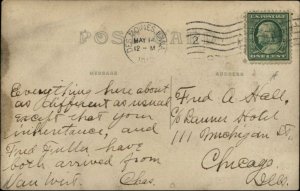 POST CARD
DES MOINES, IOWA
MAY 14
12-M
2
U.S. POSTAGE
ONE CENT
MESSAGE
ADDRESS
Everything here about
as different as usual
Except that your
inheritance, and
Fred have
both arrived from
Van Wert. Chas.
Fred A. Hall,
c/o Danner Hotel
111 Michigan St.,
Chicago
Ills.